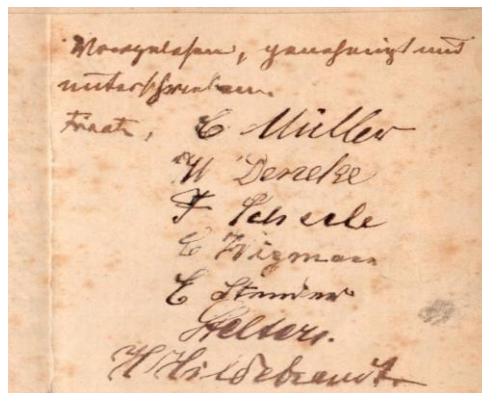 Vorgelesen, genehmigt und
unterschrieben.
C Müller
H Deneke
F Scheele
C Wigmann
C Stender
Helters.
H Hildebrandt.